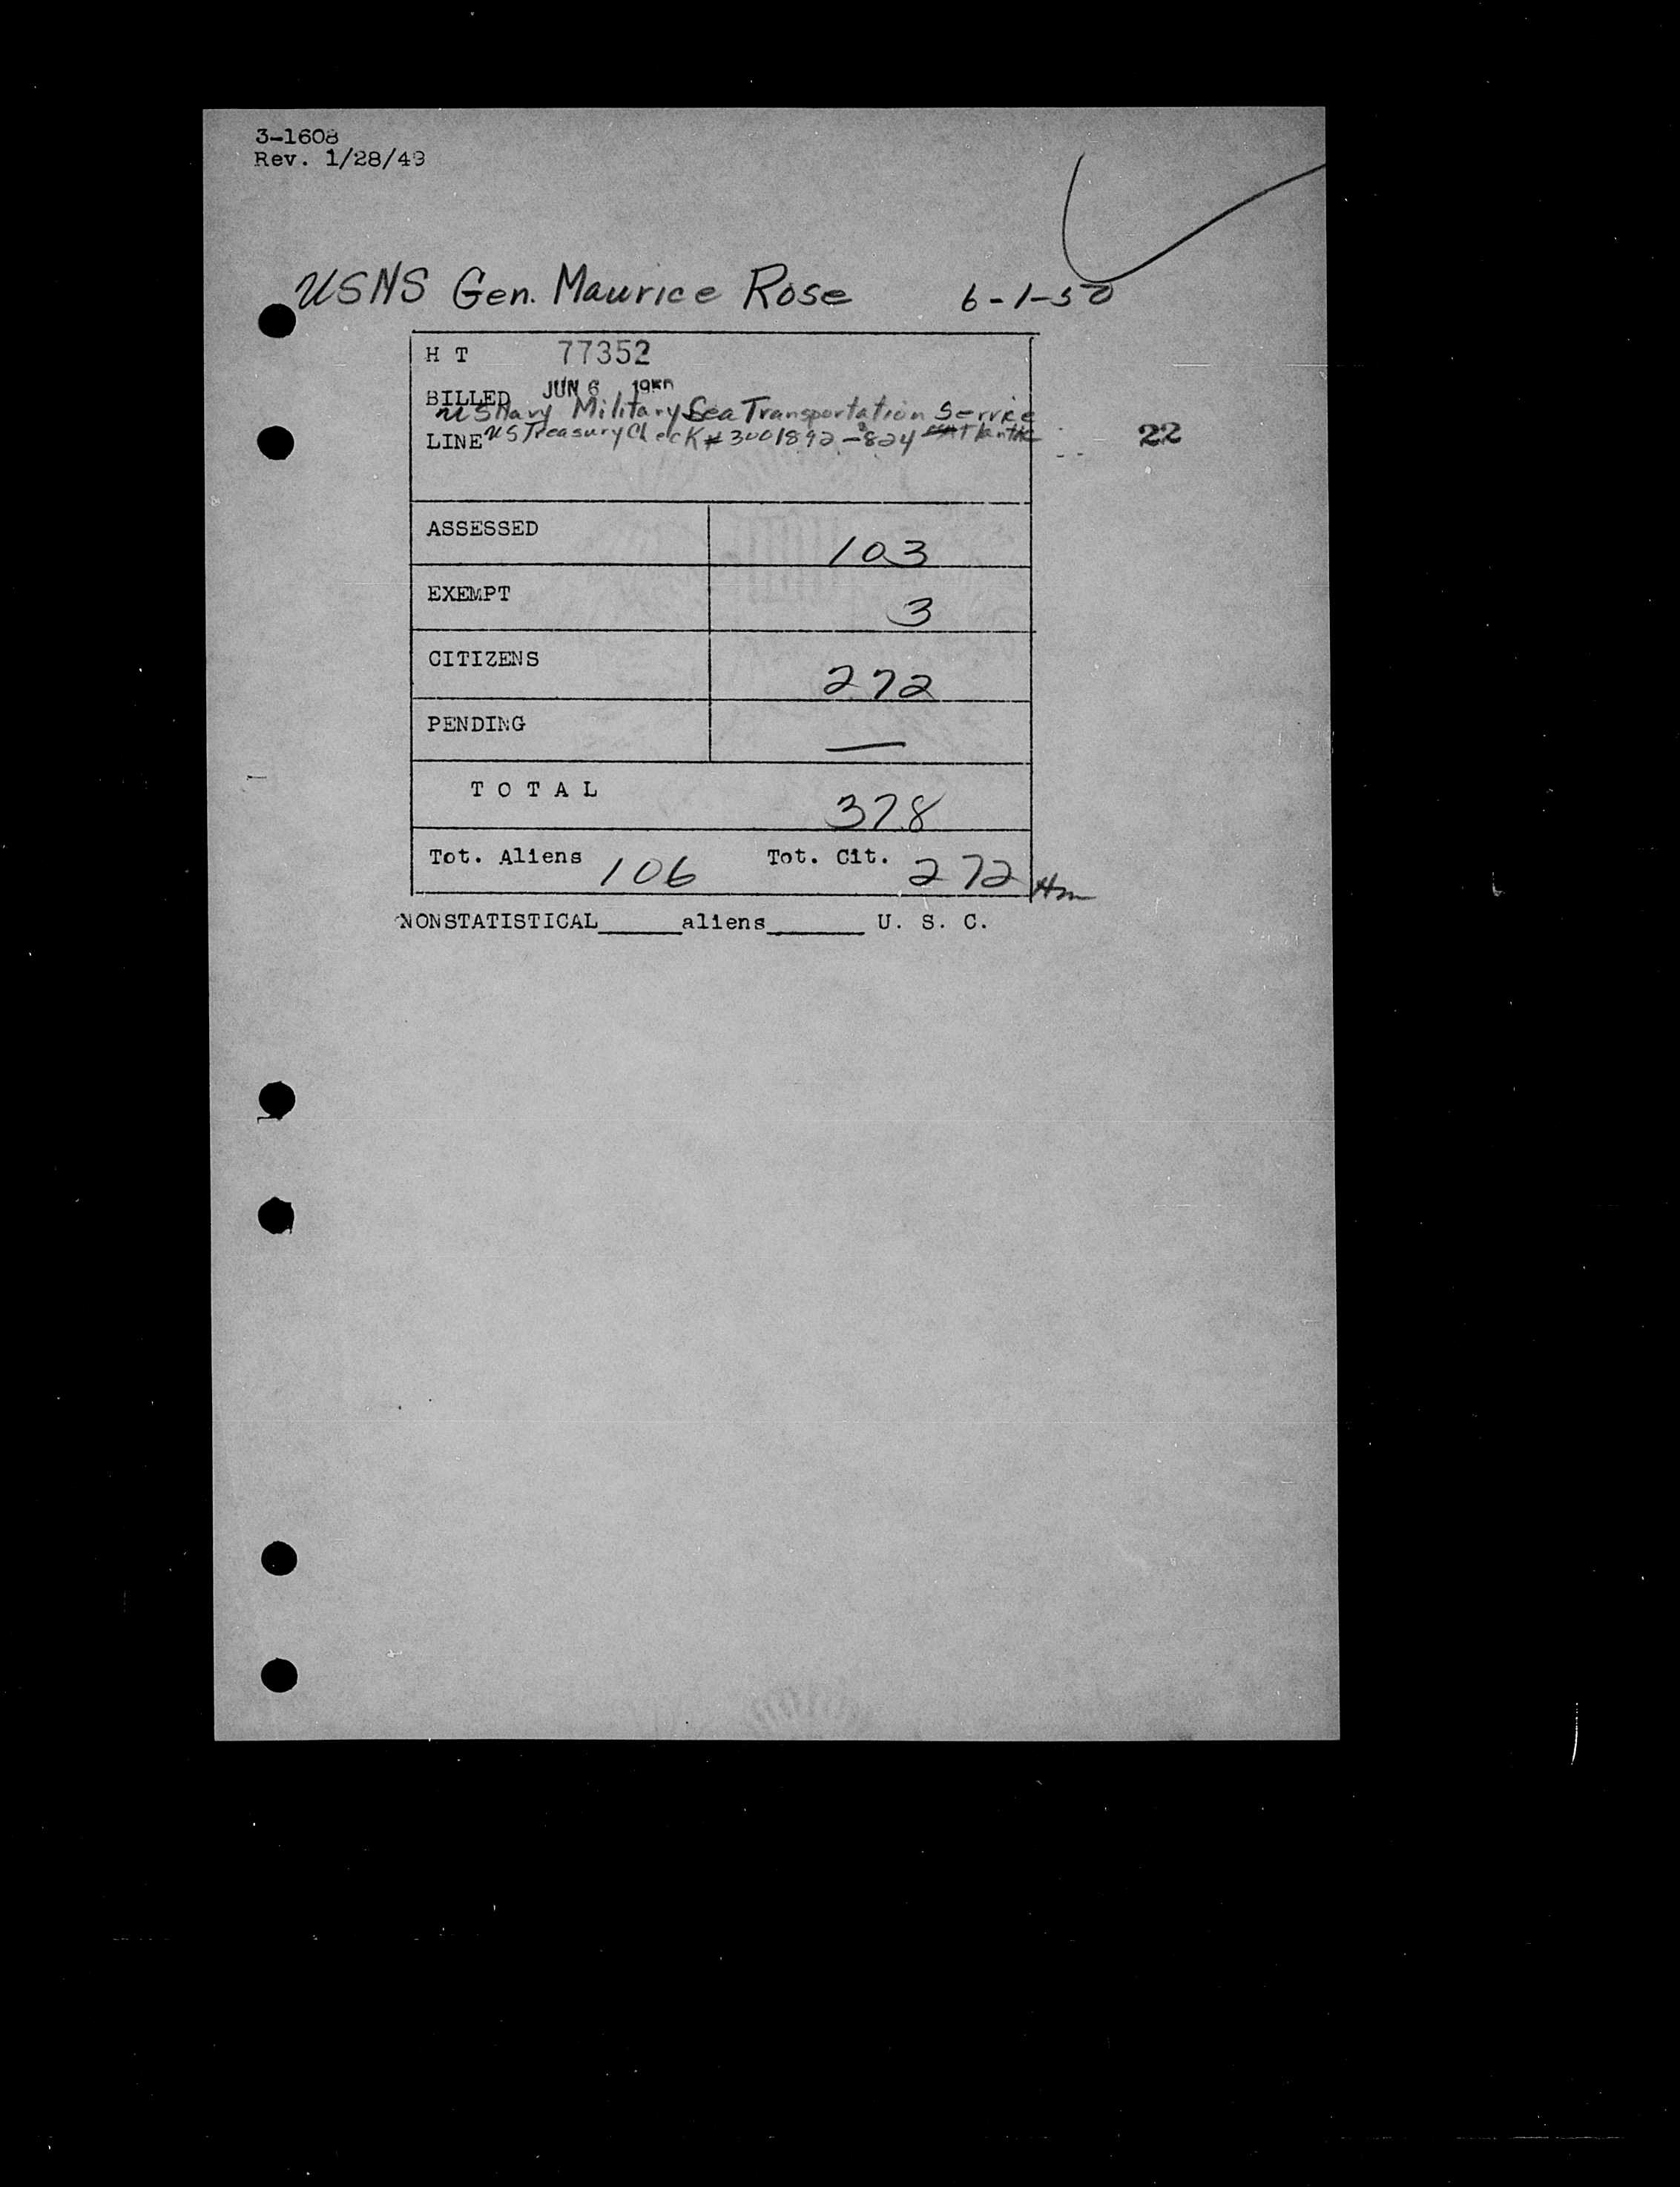 3-1608
Rev. 1/28/49
USNS Gen. Maurice Rose 6-1-50
H T 77352
BILLED JUN 6 1950
US Navy Military Sea Transportation Service
LINE US Treasury Check # 3001892-824 Atlantic
22
ASSESSED 103
EXEMPT 3
CITIZENS 272
PENDING —
T O T A L 378
Tot. Aliens 106 Tot. Cit. 272
NONSTATISTICAL______aliens_______ U. S. C.